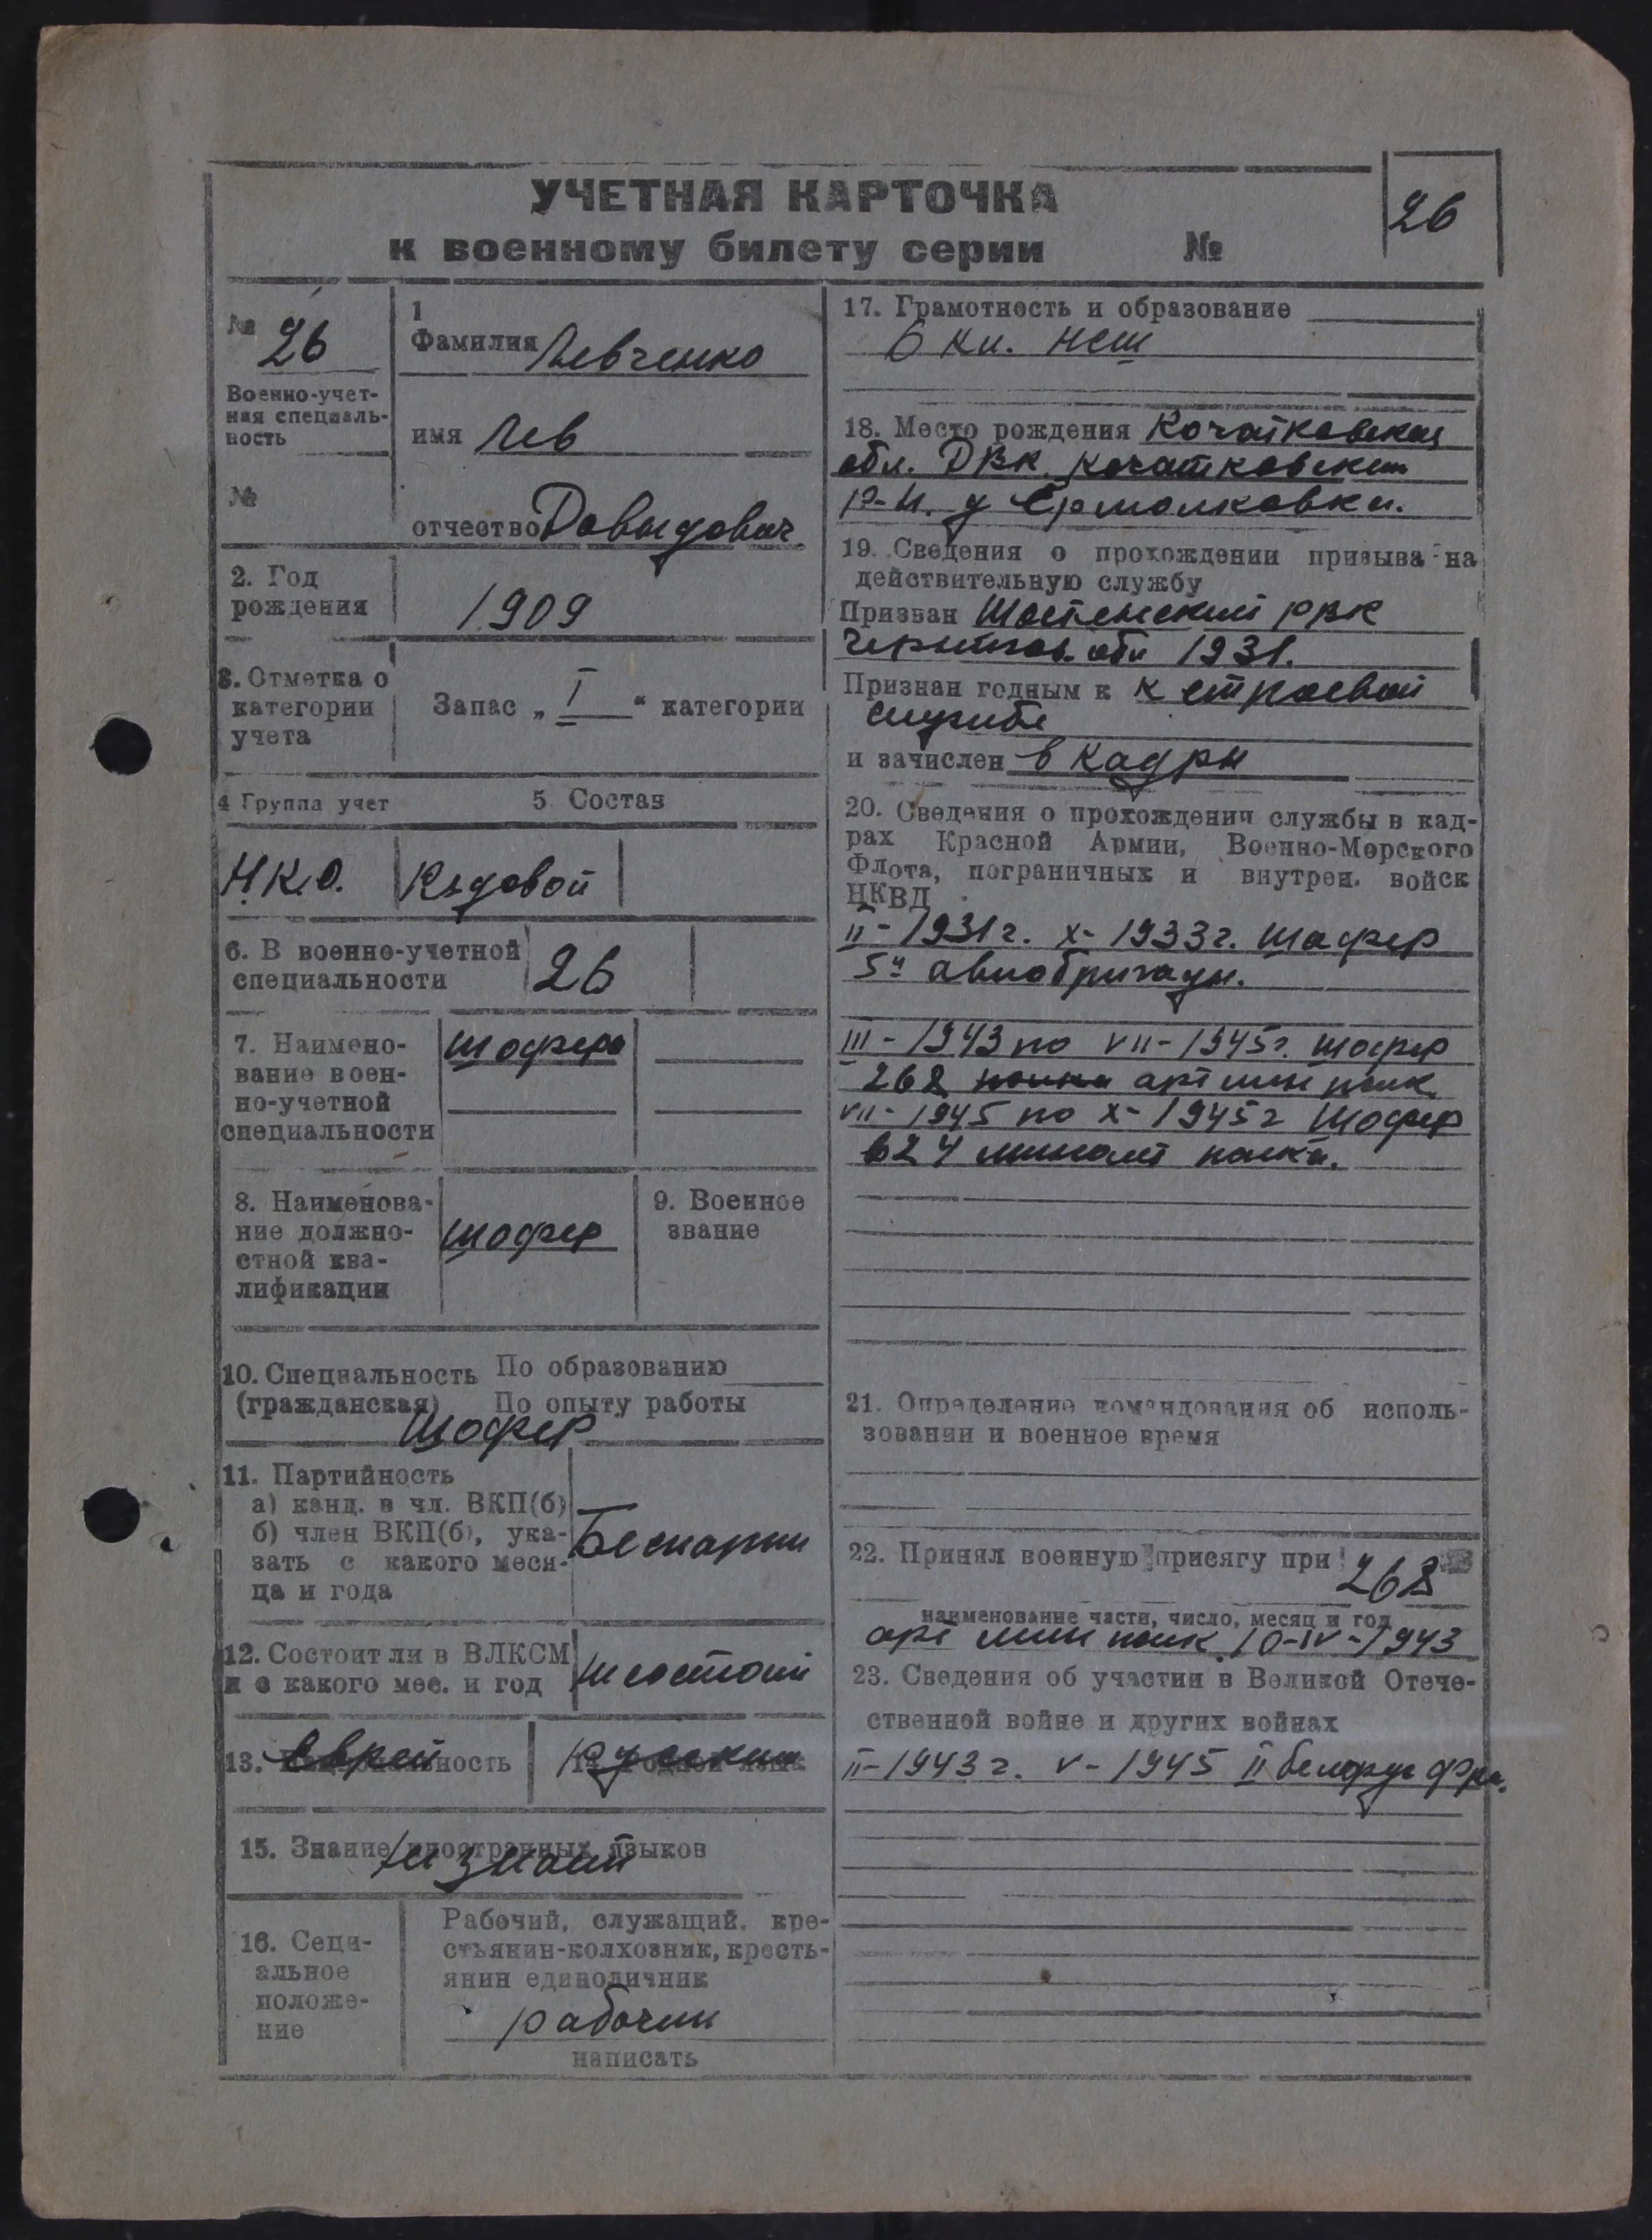 УЧЕТНАЯ КАРТОЧКА
к военному билету серии №
26
№ 26
Военно-учет-
ная специаль-
ность
№
1
Фамилия Левченко
имя Лев
отчество Довыдович
2. Год
рождения
1909
3. Отметка о
категории
учета
Запас „ I “ категории
4 Группа учет
5 Состав
Н.К.О. Рядовой
6. В военно-учетной
специальности
26
7. Наимено-
вание воен-
но-учетной
специальности
шофера
8. Наименова-
ние должно-
стной ква-
лификации
шофер
9. Военное
звание
10. Специальность По образованию
(гражданская) По опыту работы
шофер
11. Партийность
а) канд. в чл. ВКП(б)
б) член ВКП(б), ука-
зать с какого меся-
ца и года
Беспартин
12. Состоит ли в ВЛКСМ
и с какого мес. и год
не состоит
13. Национальность
еврей
14. Родной язык
русский
15. Знание иностранных языков
не знает
16. Соци-
альное
положе-
ние
Рабочий, служащий, кре-
стьянин-колхозник, кресть-
янин единоличник
рабочий
написать
17. Грамотность и образование
6 кл. нсш
18. Место рождения
обл. ДВК.
р-н. д Ермолковка.
19. Сведения о прохождении призыва на
действительную службу
Призван Шостенский РВК
обл 1931.
Признан годным к к строевой
службе
и зачислен в кадры
20. Сведения о прохождении службы в кад-
рах Красной Армии, Военно-Морского
Флота, пограничных и внутрен. войск
НКВД
II - 1931 г. X - 1933 г. шофер
5й авиобригады.
III - 1943 по VII - 1945 г. шофер
268 полка арт мин полк
VII - 1945 по X - 1945 г шофер
624 полка.
21. Определение командования об исполь-
зовании и военное время
22. Принял военную присягу при 268
наименование части, число, месяц и год
арт мин полк 10-IV-1943
23. Сведения об участии в Великой Отече-
ственной войне и других войнах
II - 1943 г. V - 1945 II белорус фрн.